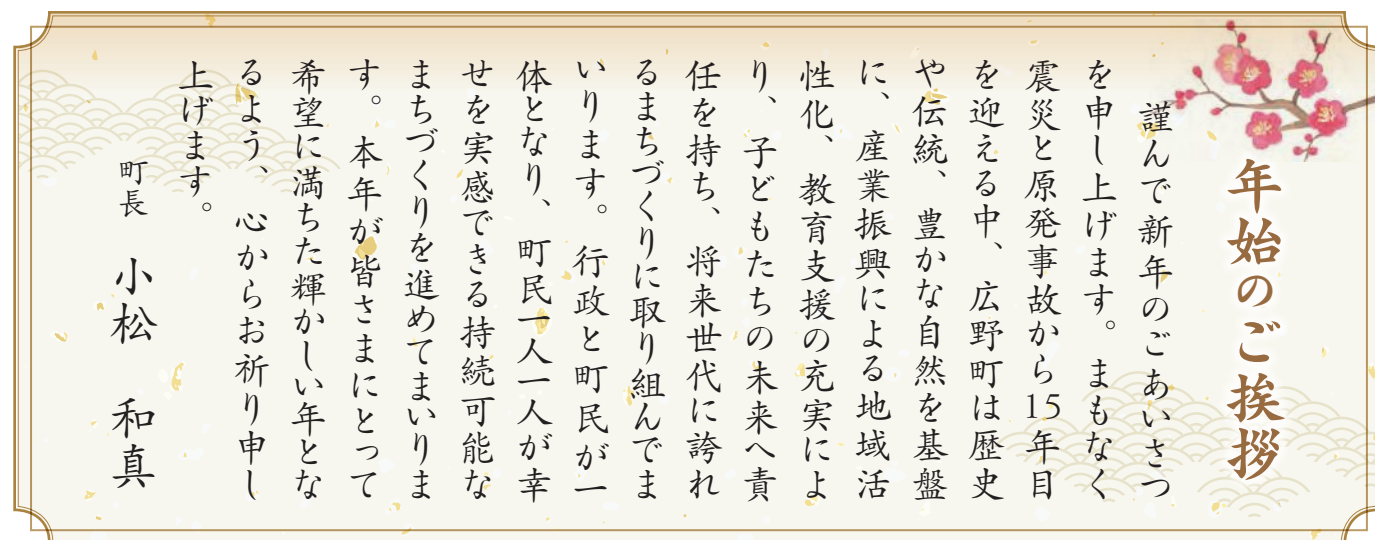 年始のご挨拶
謹んで新年のごあいさつ
を申し上げます。まもなく
震災と原発事故から15年目
を迎える中、広野町は歴史
や伝統、豊かな自然を基盤
に、産業振興による地域活
性化、教育支援の充実によ
り、子どもたちの未来へ責
任を持ち、将来世代に誇れ
るまちづくりに取り組んでま
いります。行政と町民が一
体となり、町民一人一人が幸
せを実感できる持続可能な
まちづくりを進めてまいりま
す。本年が皆さまにとって
希望に満ちた輝かしい年とな
るよう、心からお祈り申し
上げます。
町長 小松 和真